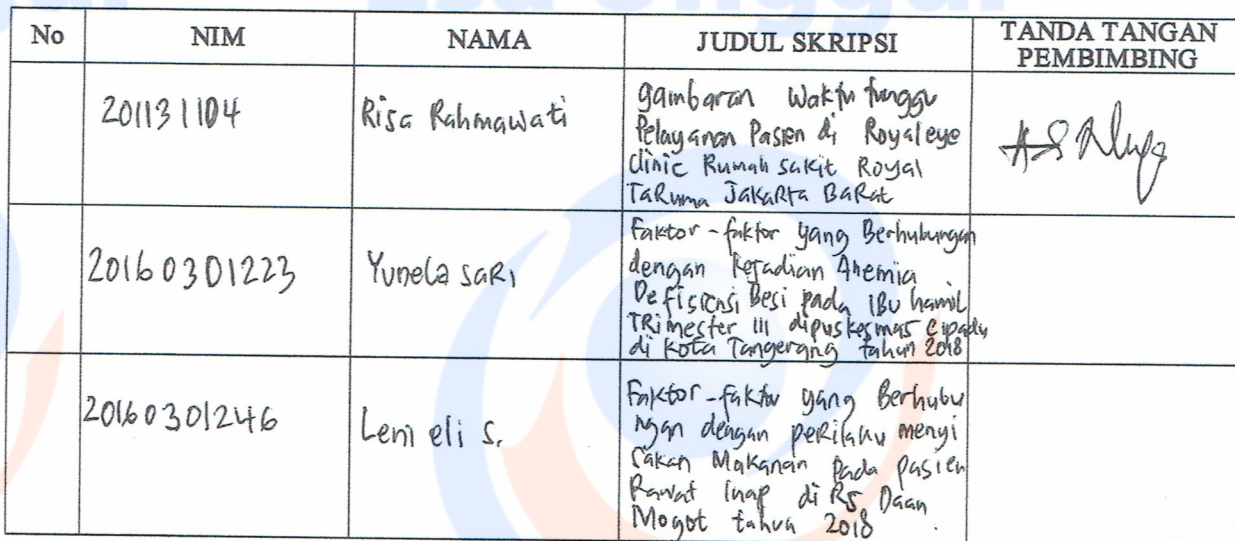 No NIM NAMA JUDUL SKRIPSI TANDA TANGAN
PEMBIMBING
201131104 Risa Rahmawati gambaran Waktu tunggu
Pelayanan Pasien di Royaleye
clinic Rumah sakit Royal
TaRuma JaKaRta BaRat
20160301223 Yunela saRi Faktor-faktor yang Berhubungan
dengan Kejadian Anemia
Defisiensi Besi pada IBu hamil
TRimester III dipuskesmas cipadu
di Kota Tangerang tahun 2018
20160301246 Leni eli S. Faktor-faktor yang Berhubu
ngan dengan peRilaku menyi
sakan Makanan pada pasien
Rawat Inap di Rs Daan
Mogot tahun 2018.